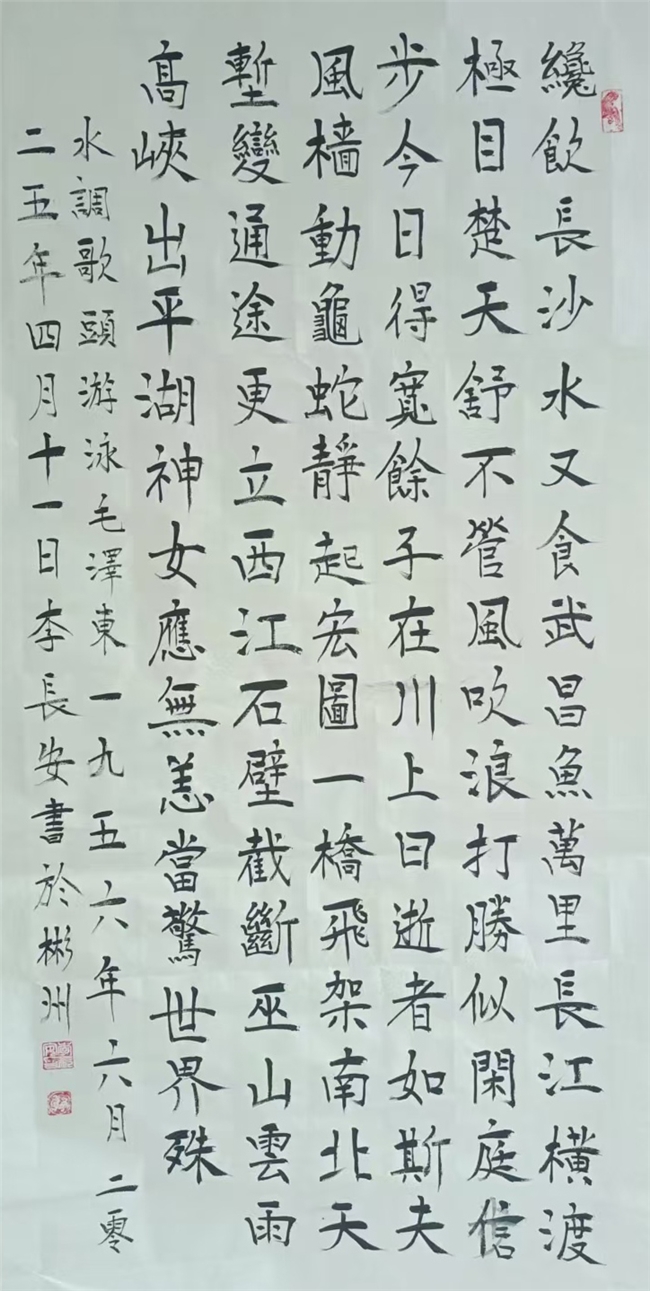 纔飲長沙水又食武昌魚萬里長江橫渡
極目楚天舒不管風吹浪打勝似閑庭信
步今日得寬餘子在川上曰逝者如斯夫
風檣動龜蛇靜起宏圖一橋飛架南北天
塹變通途更立西江石壁截斷巫山雲雨
高峽出平湖神女應無恙當驚世界殊
水調歌頭游泳毛澤東一九五六年六月二零
二五年四月十一日李長安書於彬州